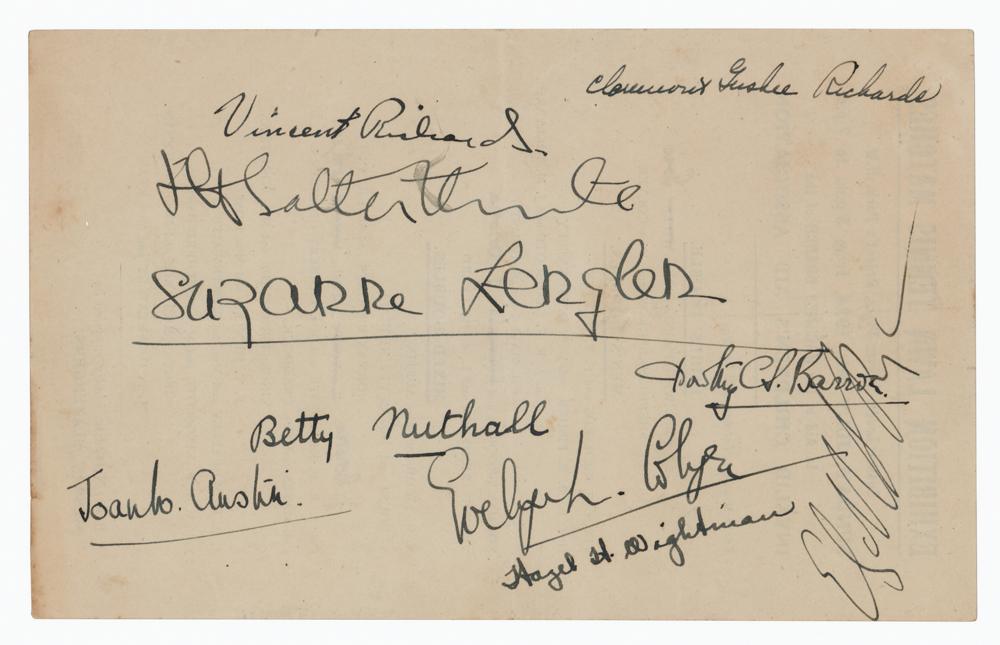 Claremont Gushee Richards
Vincent Richards.
Satterthwaite
Suzanne Lenglen
Dorothy C. S. Barron.
Betty Nuthall
Evelyn L. Colyer
Joan W. Austin.
Hazel H. Wightman